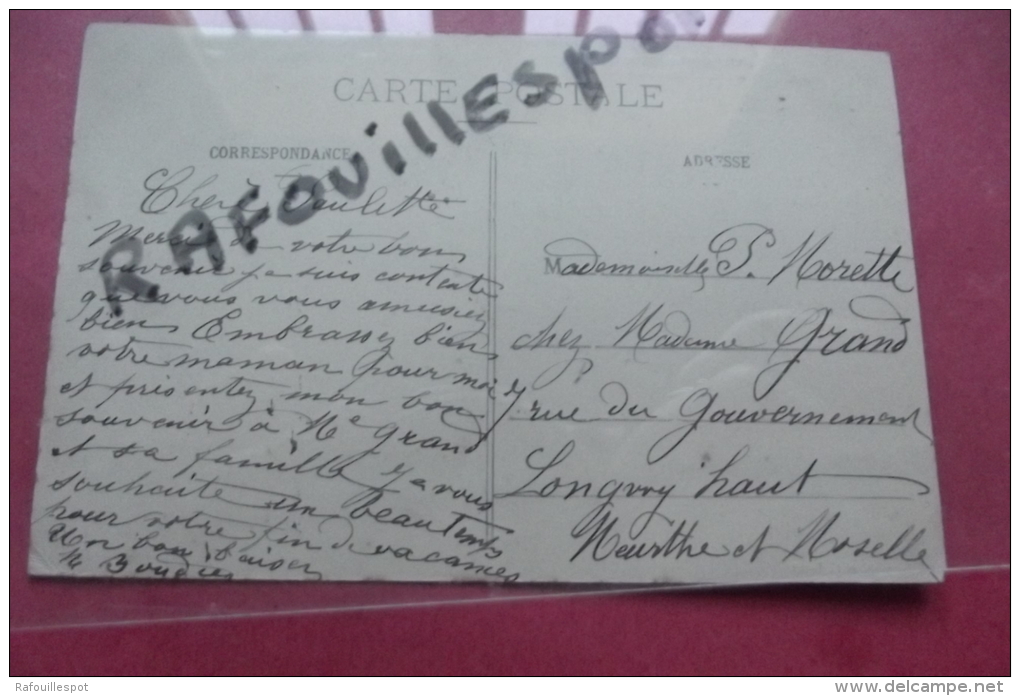 CARTE POSTALE
CORRESPONDANCE
Rafouillespot
Chère Paulette
Merci de votre bon
souvenir je suis contente
que vous vous amusiez
bien Embrassez bien
votre maman pour moi
et présentez mon bon
souvenir à Me Grand
et sa famille Je vous
souhaite un beau temps
pour votre fin de vacances
Un bon baiser
ADRESSE
Mademoiselle P. Morette
chez Madame Grand
7 rue du Gouvernement
Longwy haut
Meurthe et Moselle
Rafouillespot
www.delcampe.net